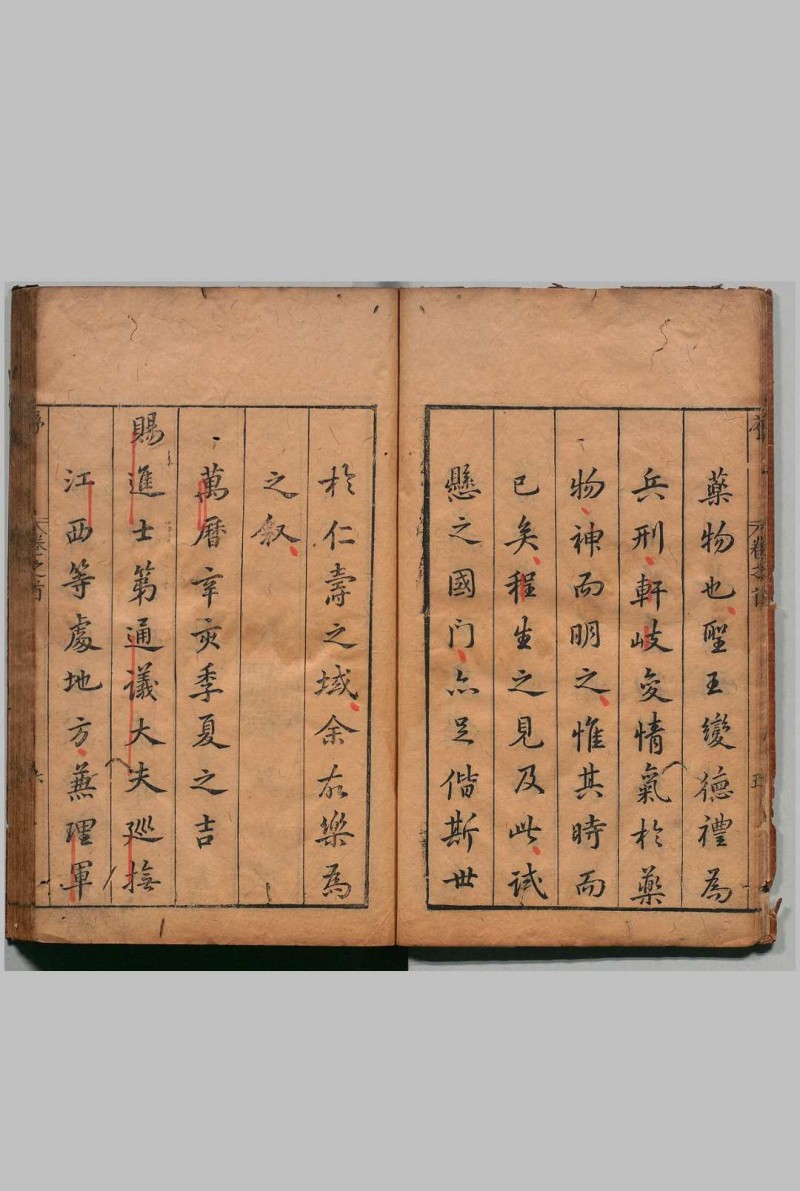 藥物也聖王變德禮為
兵刑軒岐變情氣於藥
物神而明之惟其時而
已矣程生之見及此試
懸之國門亦足偕斯世
於仁壽之域余故樂為
之叙
萬曆辛亥季夏之吉
賜進士第通議大夫巡撫
江西等處地方兼理軍
卷之首